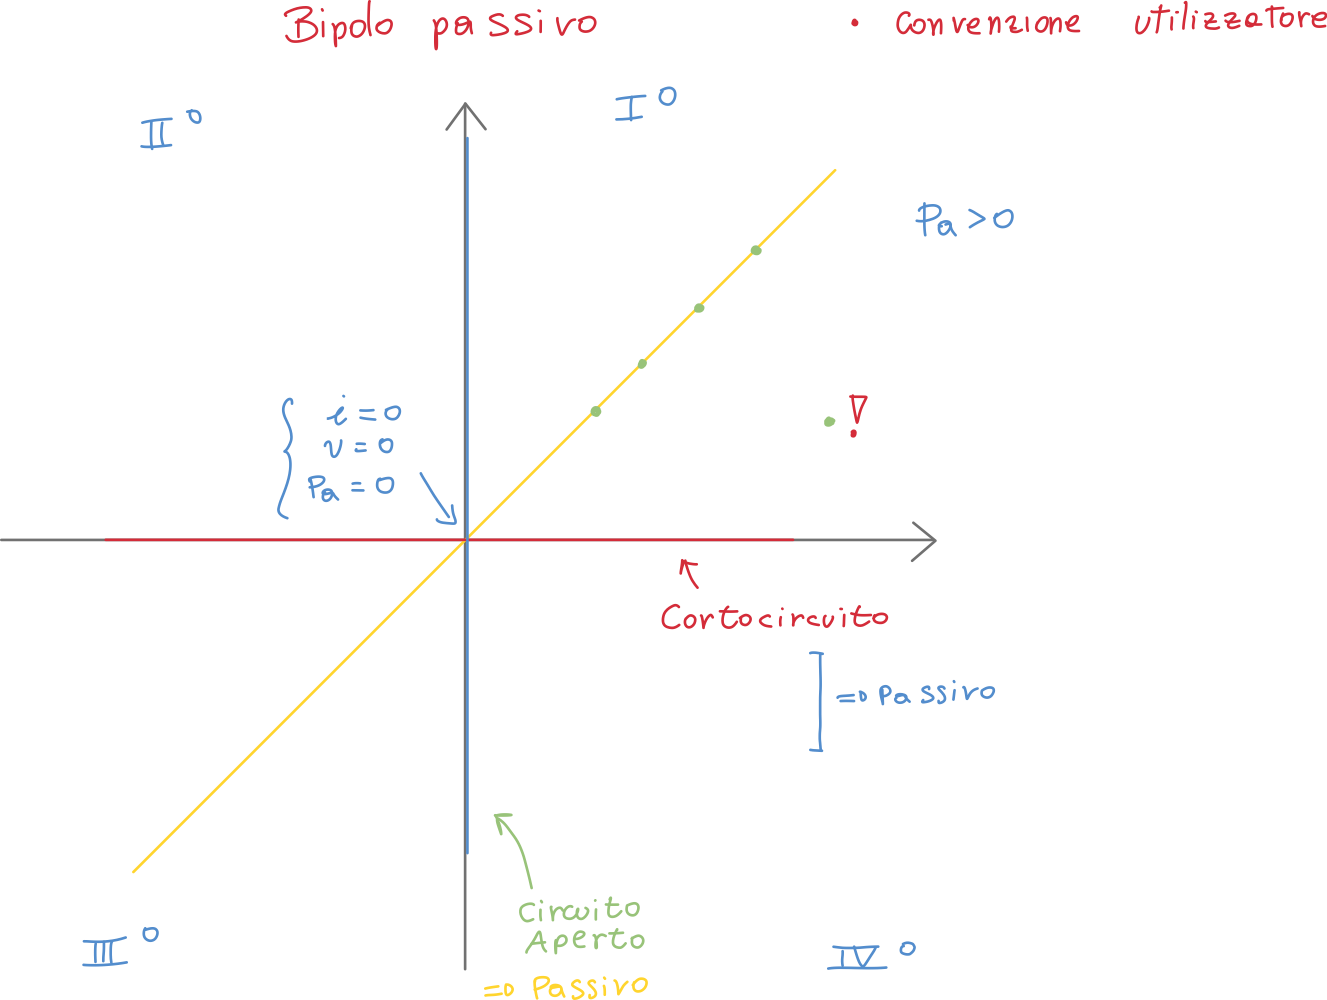 Bipolo passivo
• Convenzione utilizzatore
II°
I°
Pa > 0
i = 0
v = 0
Pa = 0
!
Cortocircuito
⇒ Passivo
Circuito
Aperto
⇒ Passivo
III°
IV°